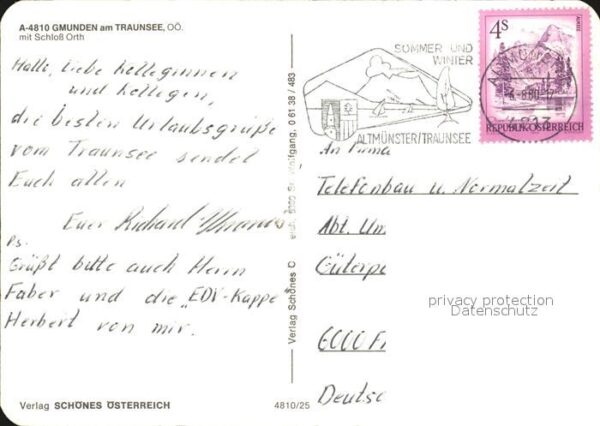 A-4810 GMUNDEN am TRAUNSEE, OÖ.
mit Schloß Orth
Hallo, liebe Kolleginnen
und Kollegen,
die besten Urlaubsgrüße
vom Traunsee sendet
Euch allen
Euer Richard
Ps.
Grüßt bitte auch Herrn
Faber und die „EDV-Kappe"
Herbert von mir.
Verlag SCHÖNES ÖSTERREICH
4810/25
Verlag Schönes Ö
Wolfgang, 0 61 38 / 483
SOMMER UND
WINTER
ALTMÜNSTER/TRAUNSEE
4S
ALMSEE
REPUBLIK ÖSTERREICH
4813
An Firma
Telefonbau u. Normalzeit
Abt. Um
Güterpe
6000 F
Deutsc
privacy protection
Datenschutz